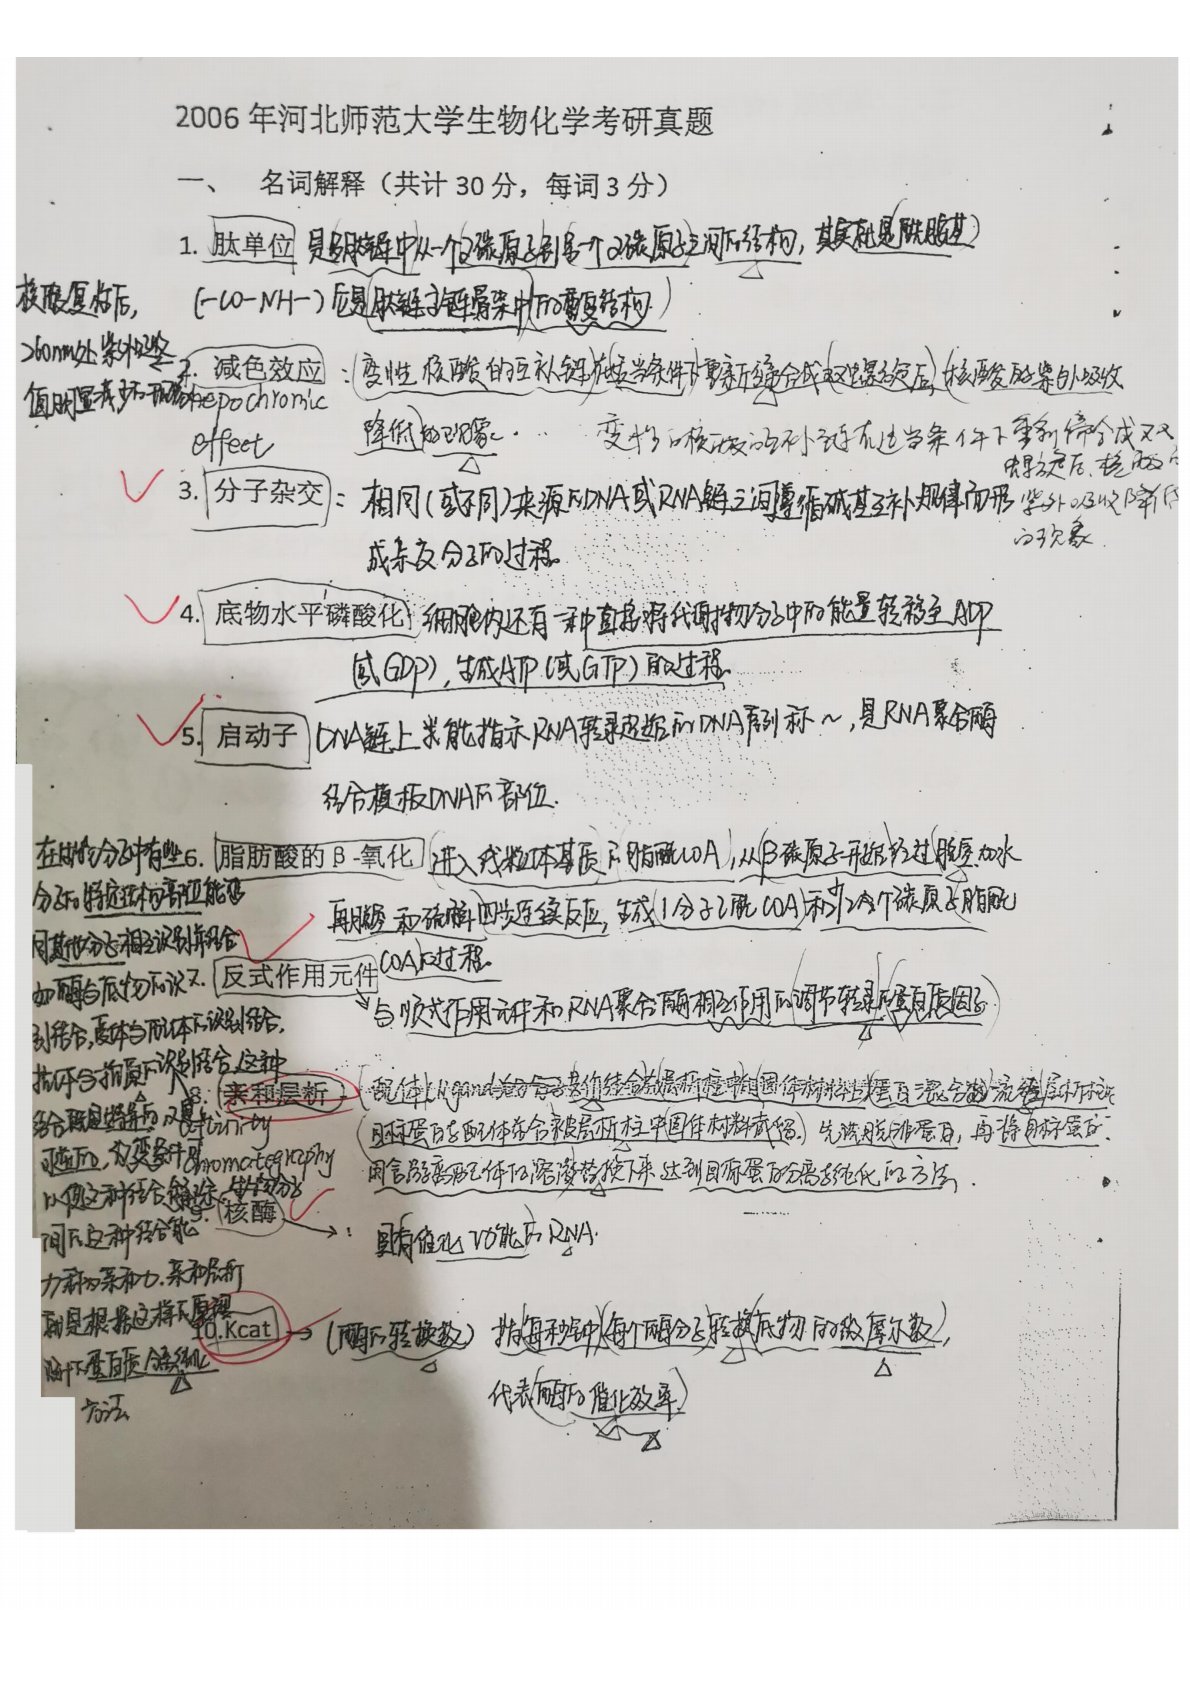 2006 年河北师范大学生物化学考研真题
一、 名词解释（共计 30 分，每词 3 分）
1. 肽单位 是多肽链中从一个α碳原子到另一个α碳原子之间的结构，其实就是酰胺基
(-CO-NH-) 它是肽链主链骨架中的重复结构.
核酸复性后，
260nm处紫外吸收
值明显减少的现象
2. 减色效应：变性核酸的互补链在适当条件下重新缔合成双螺旋后，核酸的紫外吸收
hepochromic
effect
降低的现象。
变性的核酸的互补链在适当条件下重新缔合成双
螺旋后，核酸的
紫外吸收降低
的现象
3. 分子杂交：相同(或不同)来源的DNA或RNA链之间遵循碱基互补规律而形
成杂交分子的过程.
4. 底物水平磷酸化 细胞内还有一种直接将代谢物分子中的能量转移至ADP
(或GDP)，生成ATP(或GTP)的过程。
5. 启动子 DNA链上 能指示RNA转录起始的DNA序列称～，是RNA聚合酶
结合模板DNA的部位.
6. 脂肪酸的β-氧化 进入线粒体基质的脂酰COA，从β碳原子开始经过脱氢加水
再脱氢和硫解四步连续反应，生成1分子乙酰COA和少2个碳原子脂酰
COA的过程。
7. 反式作用元件
与顺式作用元件和RNA聚合酶相互作用的调节转录的蛋白质因子.
在生物分子中有些
分子的特定结构部位能够
同其他分子相互识别并结合
如酶与底物的识
别结合，受体与配体的识别结合，
抗体与抗原的识别结合，这种
结合既是特异的，又是
可逆的，改变条件可
以使这种结合解除，生物分子
间的这种结合能
力称为亲和力. 亲和层析
就是根据这样的原理
蛋白质分离纯化
方法
8. 亲和层析：
Affinity
chromatography
目标蛋白与配体结合被层析柱中固体材料截留.) 先洗脱非蛋白，再将目标蛋白
用含游离配体的溶液替换下来 达到目标蛋白分离与纯化的方法.
9. 核酶 → ：具有催化功能的RNA.
10. Kcat → (酶的转换数) 指每秒钟每个酶分子转换底物的微摩尔数，
代表酶的催化效率.